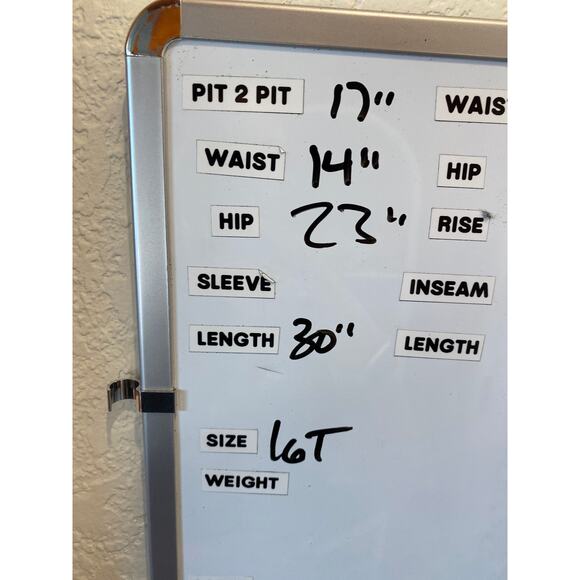 PIT 2 PIT 17" WAIS
WAIST 14" HIP
HIP 23" RISE
SLEEVE INSEAM
LENGTH 30" LENGTH
SIZE 16T
WEIGHT